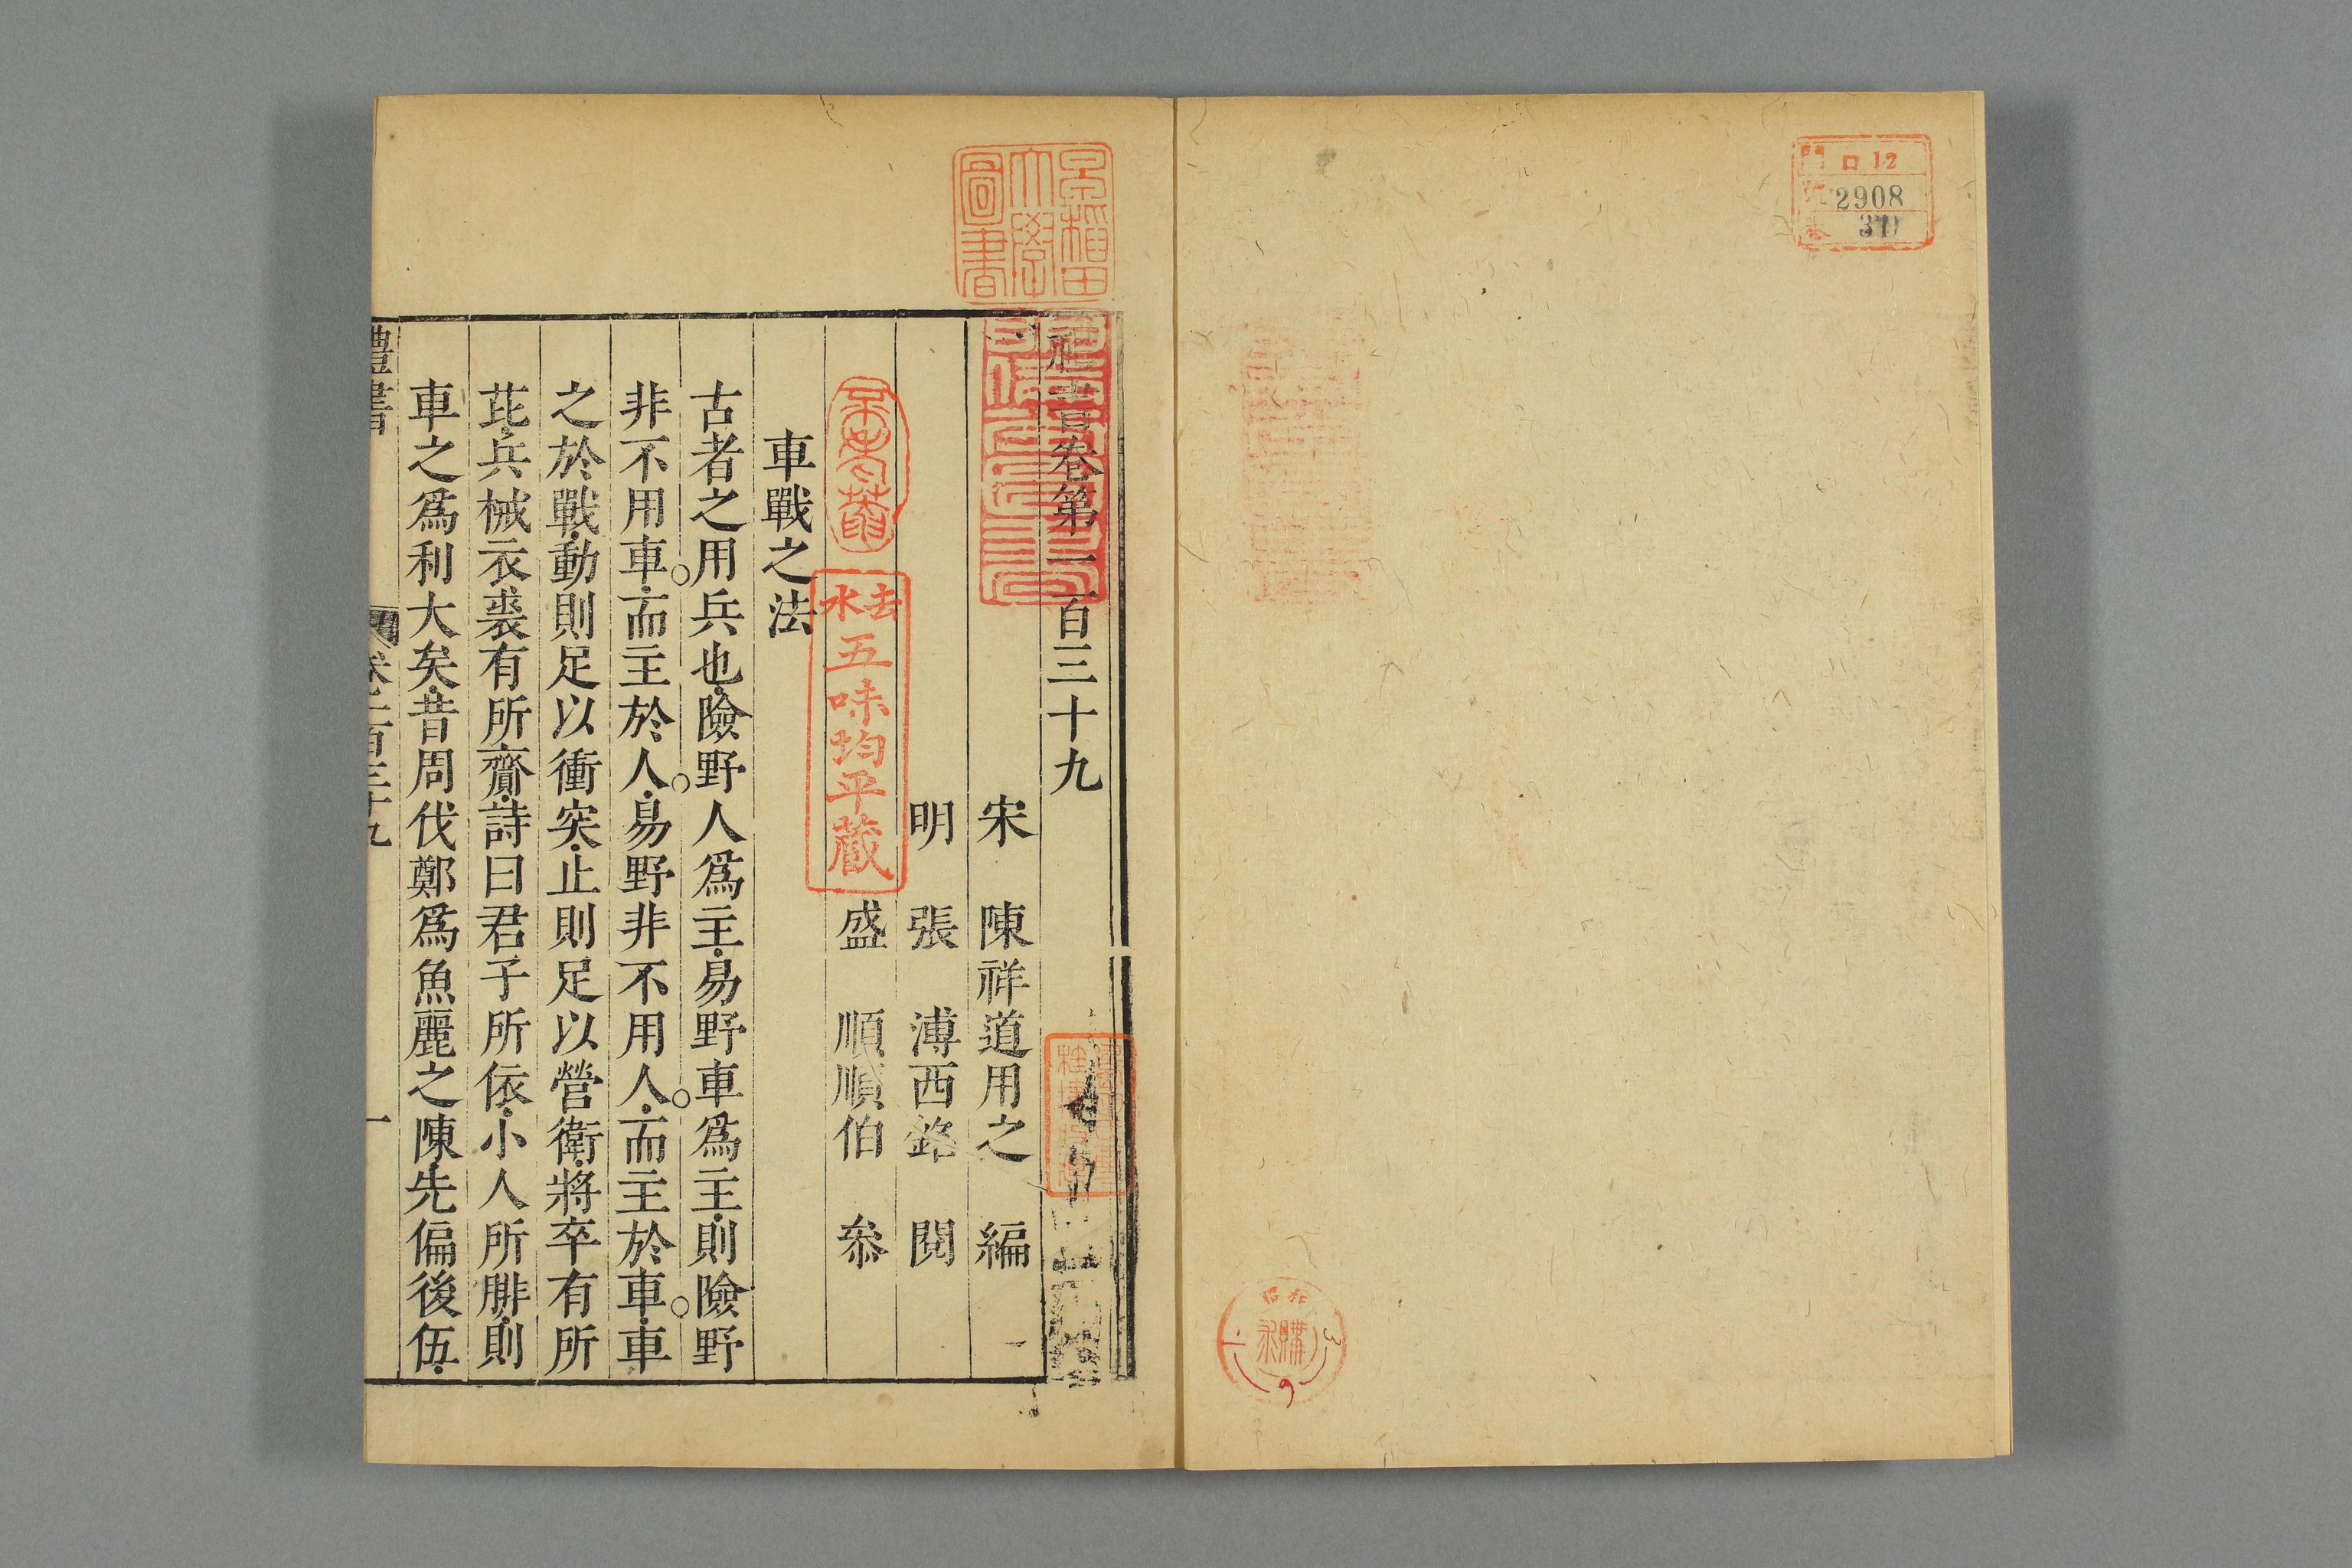 門 ロ12
號 2908
卷
昭和
購
早稲田
大學
圖書
禮書卷第一百三十九
宋 陳祥道用之 編
明 張 溥西銘 閱
盛 順順伯 叅
去水五味均平藏
車戰之法
古者之用兵也險野人爲主易野車爲主則險野
非不用車而主於人易野非不用人而主於車車
之於戰動則足以衝突止則足以營衛將卒有所
芘兵械衣裘有所齎詩曰君子所依小人所腓則
車之爲利大矣昔周伐鄭爲魚麗之陳先偏後伍
禮書 卷一百三十九 一